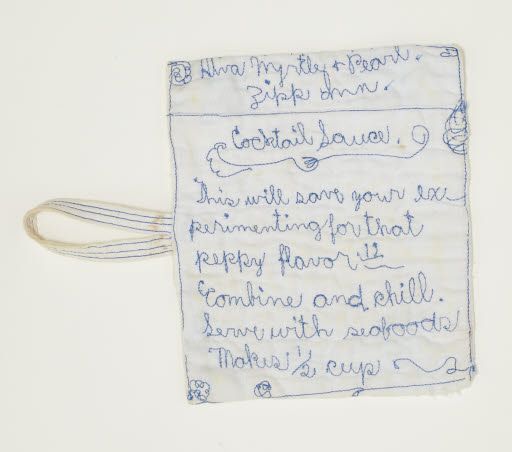 Alva Myrtle & Pearl.
Zipp Inn.
Cocktail Sauce.
This will save your ex-
perimenting for that
peppy flavor. 12
Combine and chill.
Serve with seafoods
Makes 1/2 cup